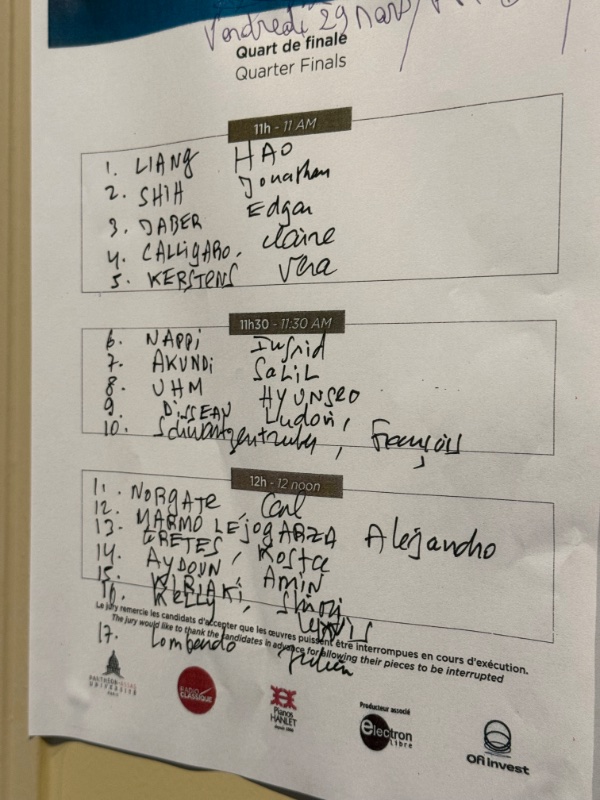 Vendredi 29 Mars
Quart de finale
Quarter Finals
11h - 11 AM
1. LIANG HAO
2. SHIH Jonathan
3. DABER Edgar
4. CALLIGARO, Claire
5. KERSTENS Vera
11h30 - 11:30 AM
6. NAPPI Ingrid
7. AKUNDI SALIL
8. UHM HYUNSEO
9 DISSEAN Ludovi,
10. Schwartzentruber, François
12h - 12 noon
11. NORGATE, Carl
12. MARMOLEJO GARZA Alejandro
13. KRETES, Kosta
14. AYDOUN, AMIN
15. KIRIAKI, 
16. Kelly, LEWIS
Le jury remercie les candidats d'accepter que les œuvres puissent être interrompues en cours d'exécution.
The jury would like to thank the candidates in advance for allowing their pieces to be interrupted
17. Lombardo Julien
PANTHÉON SORBONNE
UNIVERSITÉ
PARIS
RADIO
CLASSIQUE
Pianos
HANLET
Producteur associé
electron
libre
Ofi invest